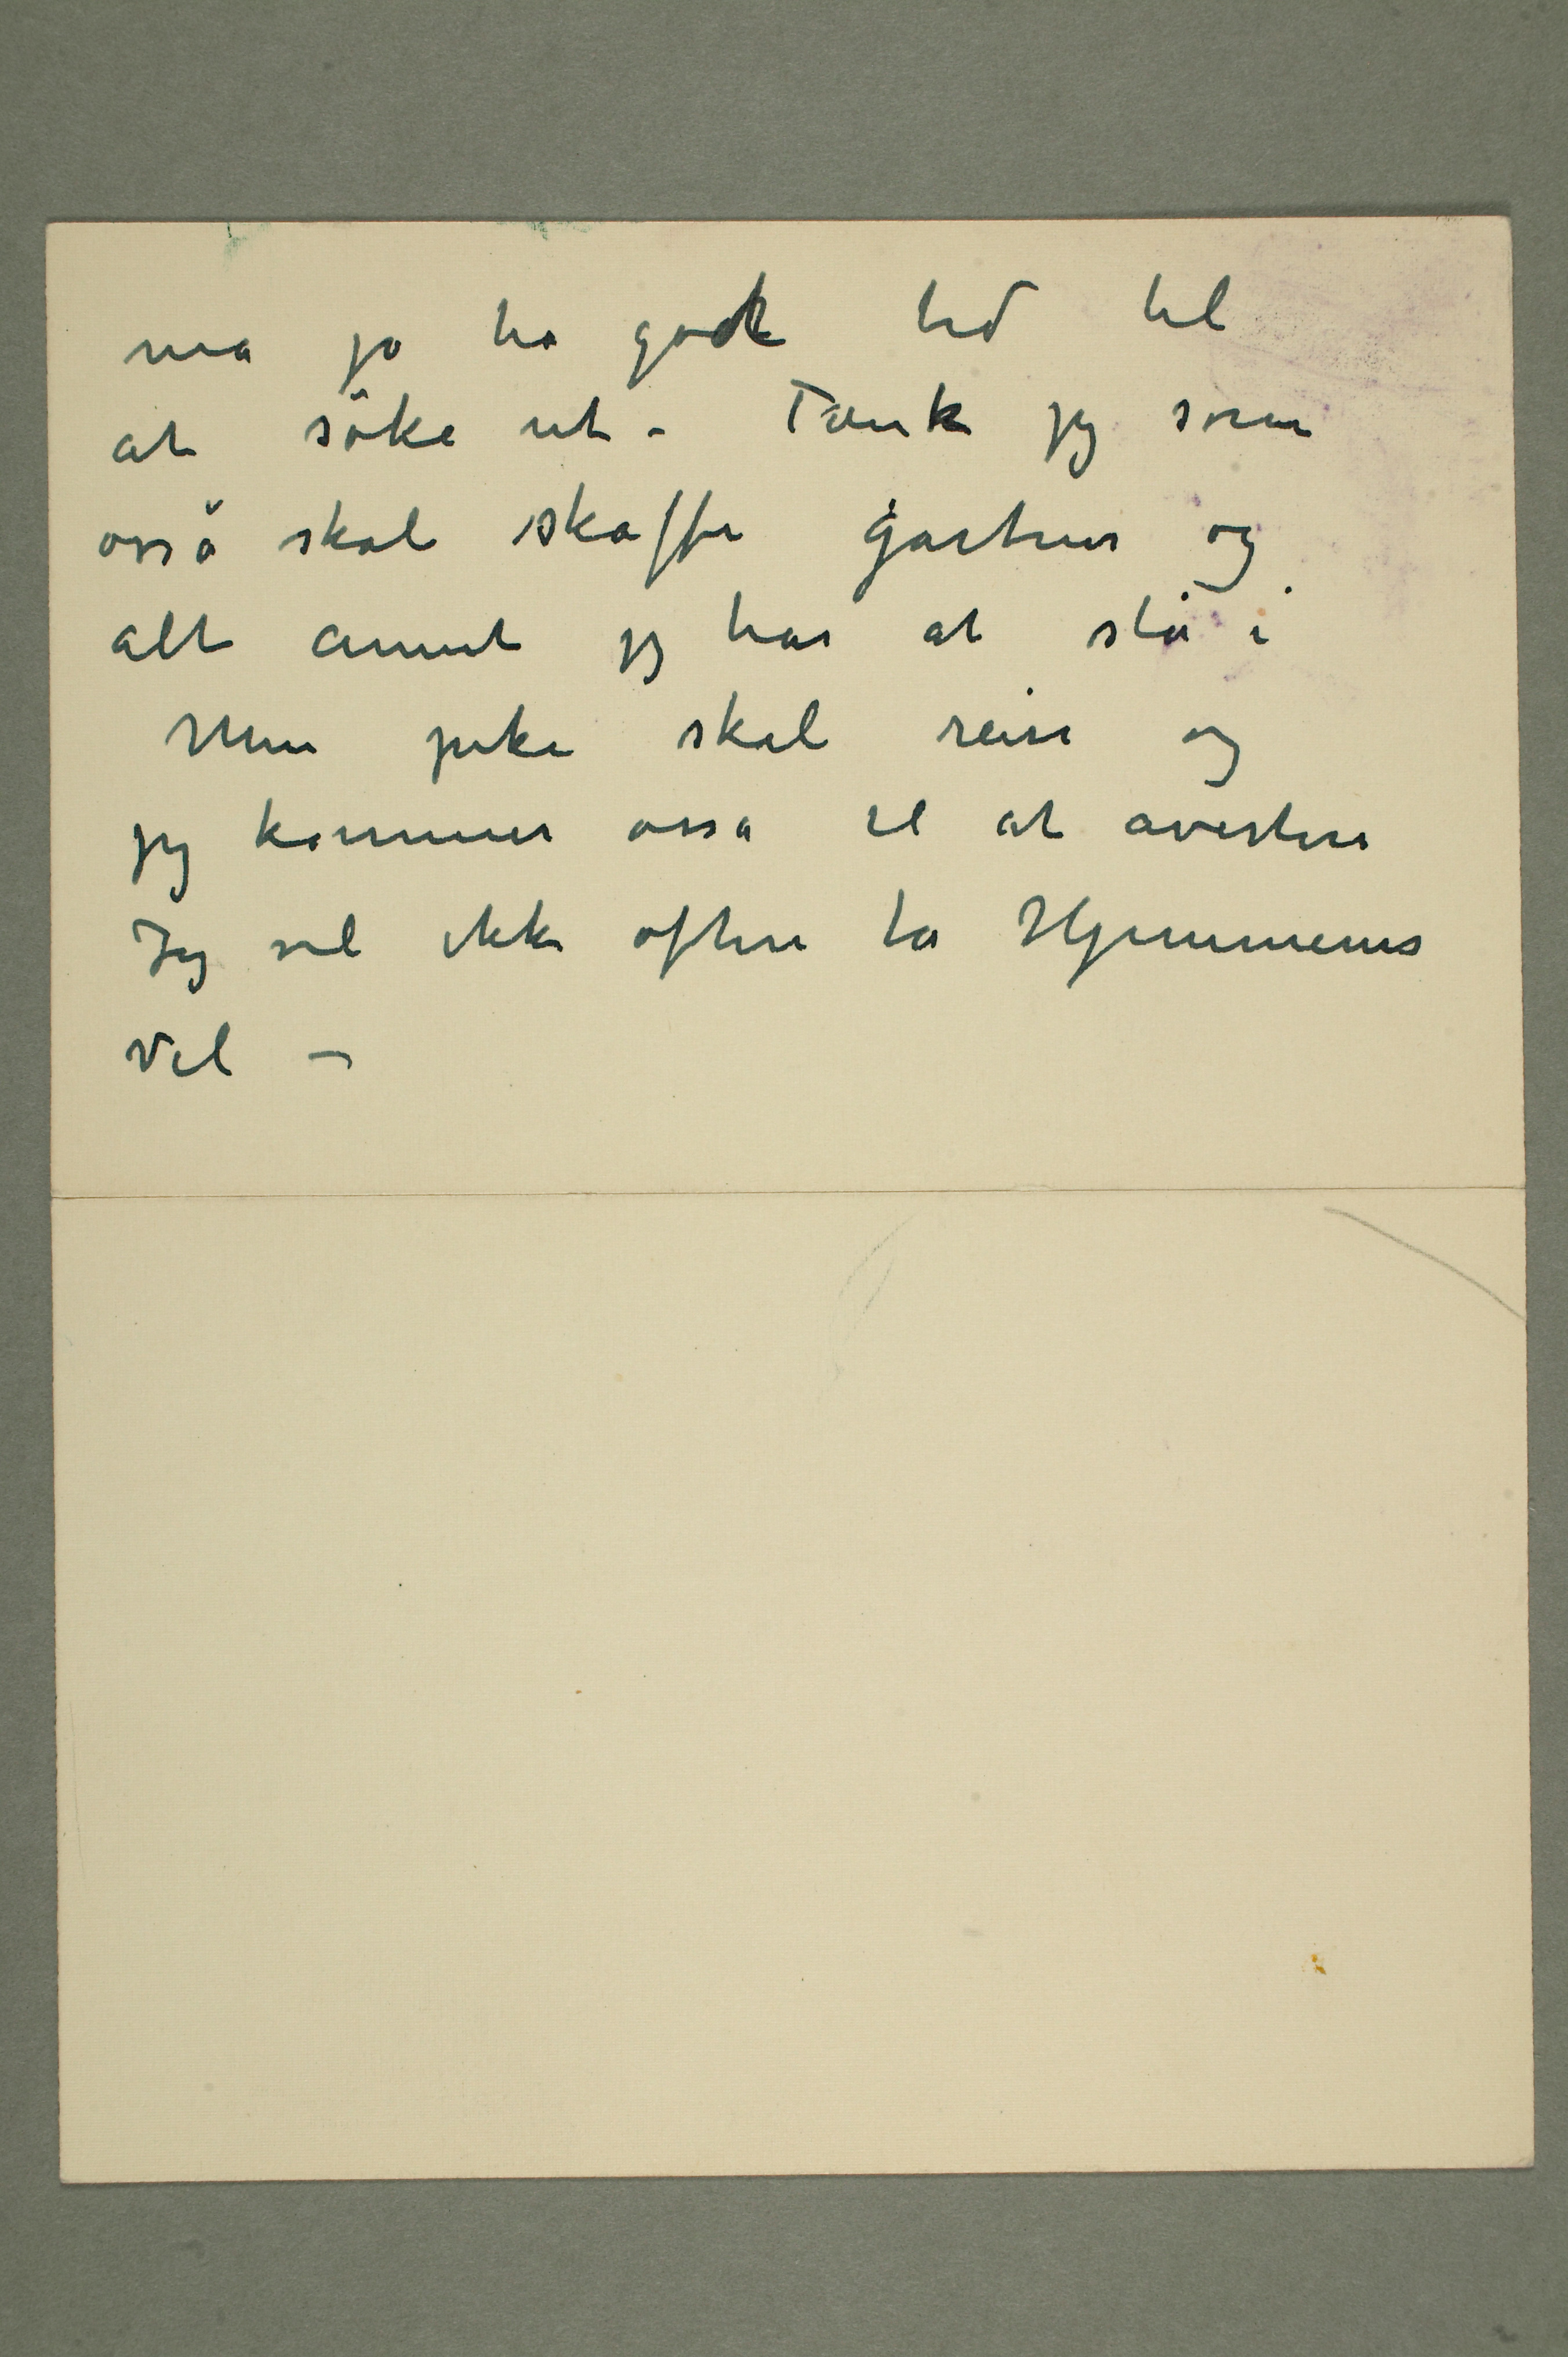 må jo ha godt tid til
at söke ut – Tænk jeg som
osså skal skaffe gartner og
alt annet jeg har at stå i
Min pike skal reise og
jeg kommer osså til at avertere
Jeg vil ikke oftere ta Hjemmenes
Vel –